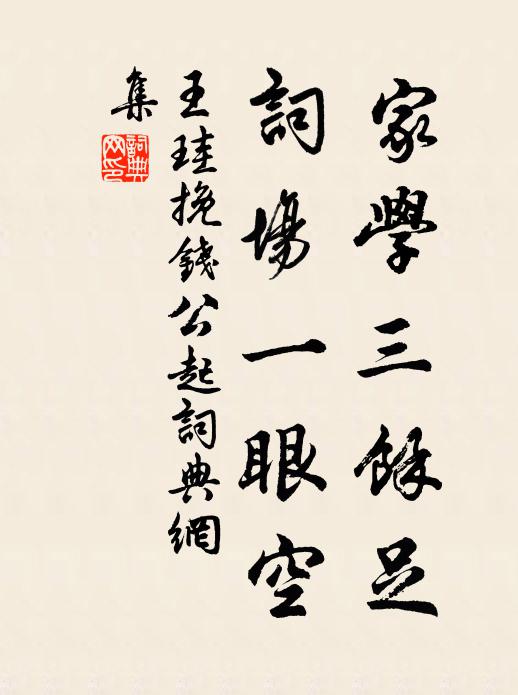 家學三餘足
詞場一眼空
王珪挽錢公起詞典網
集
詞典網印